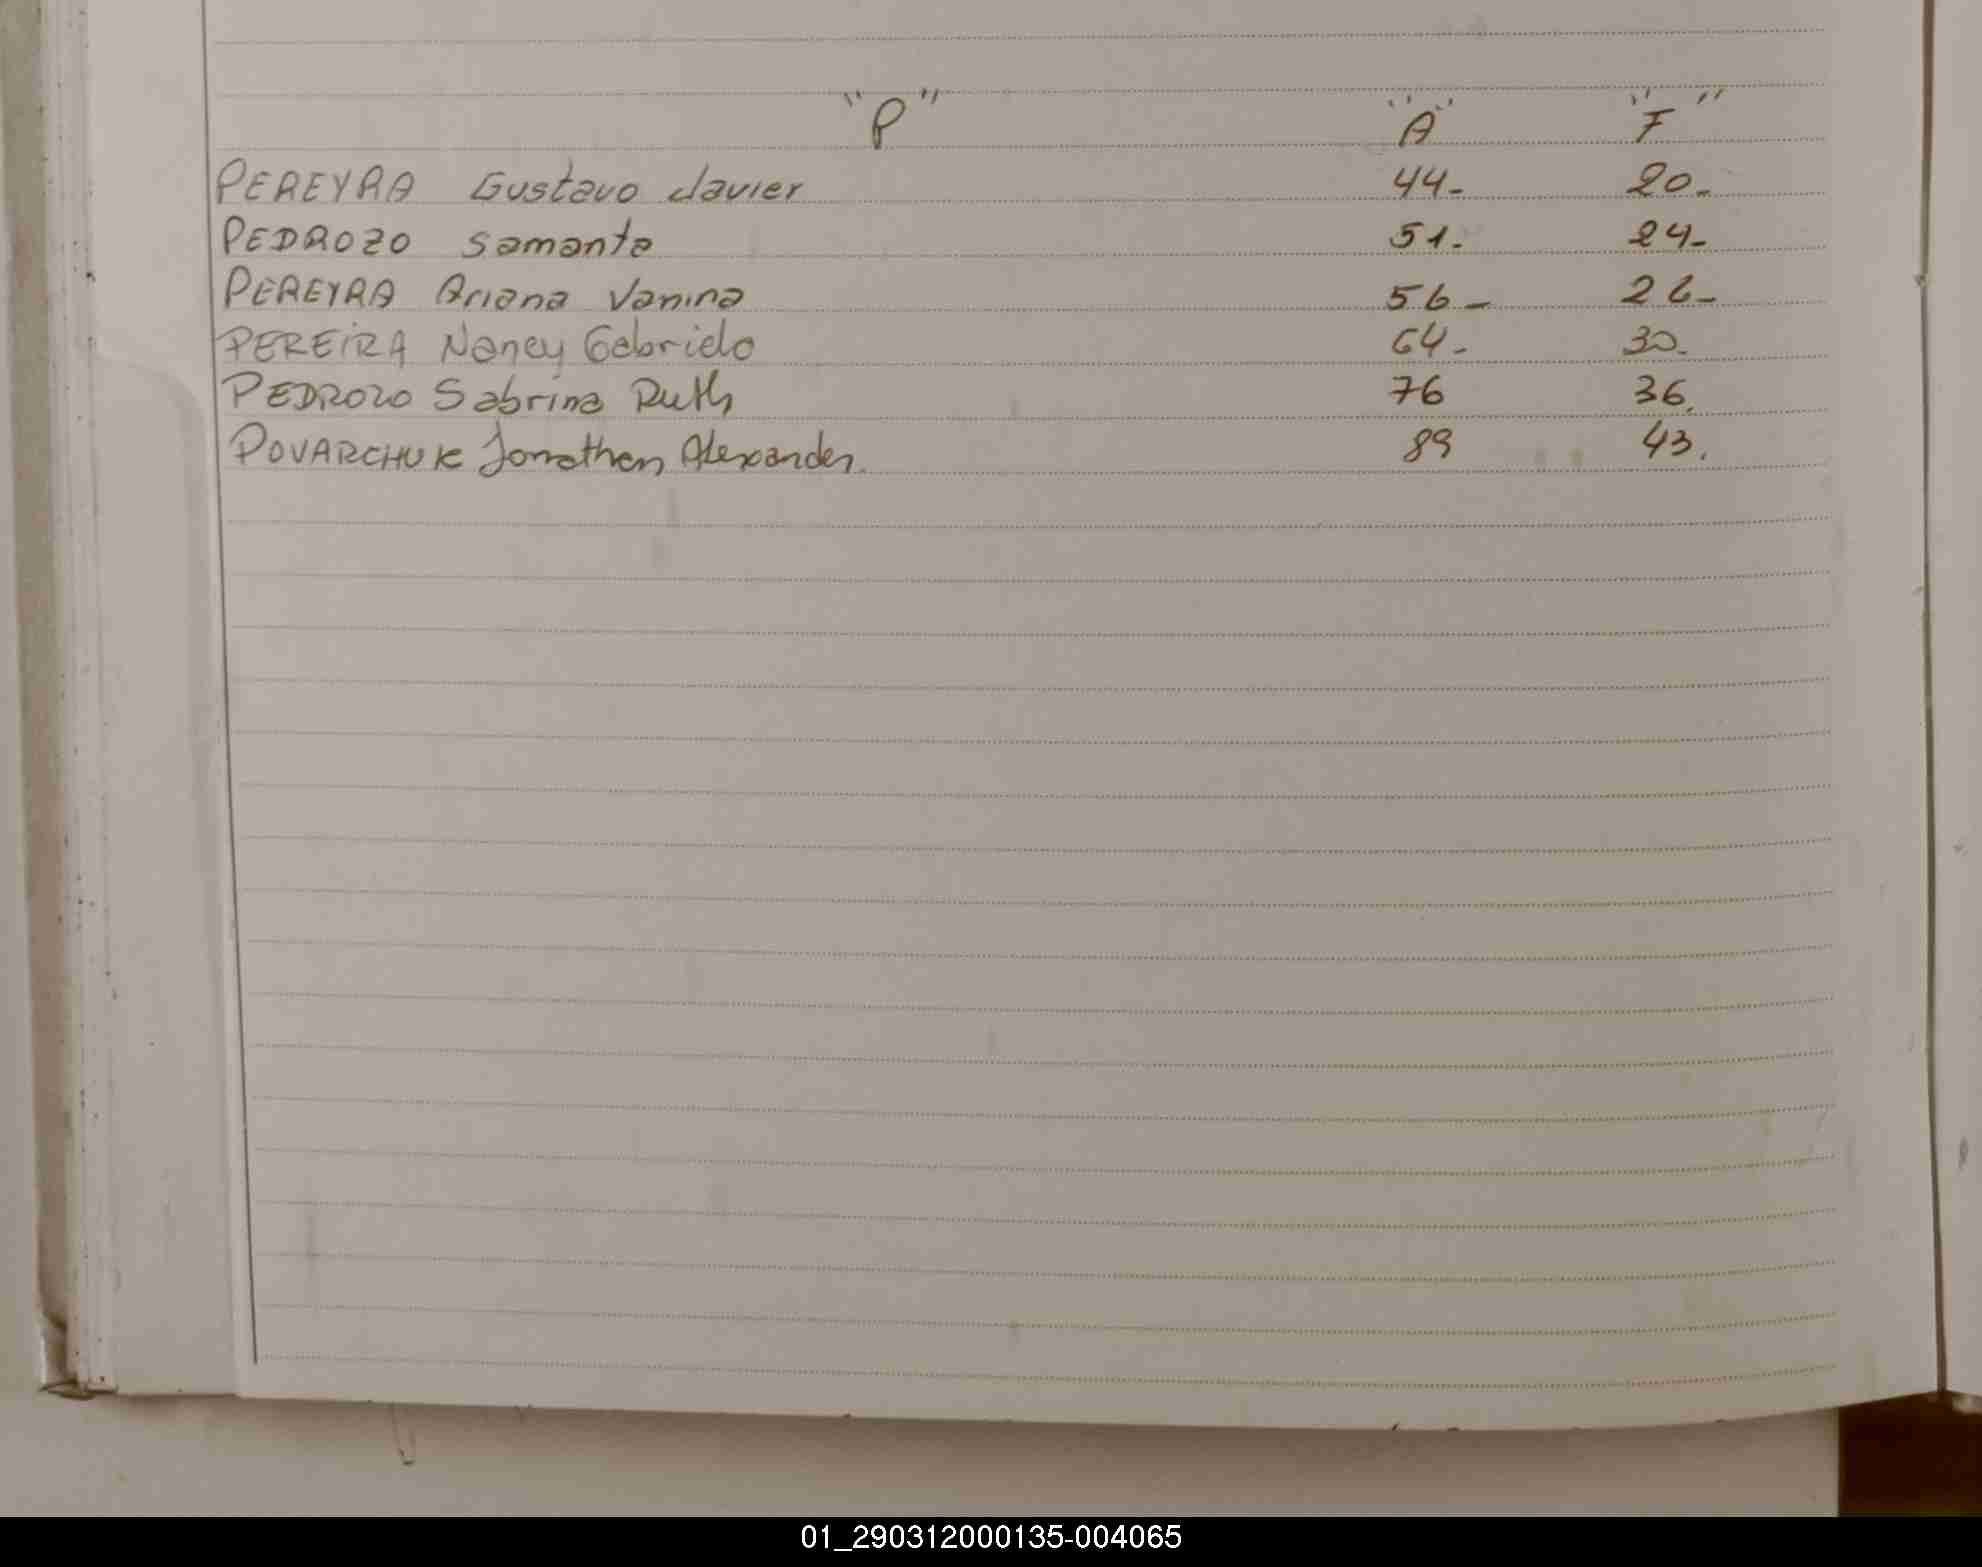 "P" "A" "F"
PEREYRA Gustavo Javier 44- 20-
PEDROZO Samanta 51- 24-
PEREYRA Ariana Vanina 56- 26-
PEREIRA Nancy Gabriela 64- 30-
PEDROZO Sabrina Ruth 76 36.
POVARCHUK Jonathan Alexander. 89 43.
01_290312000135-004065